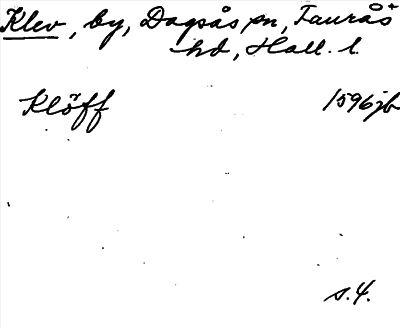 Klev, by, Dagsås sn, Faurås
hd, Hall. l.
Klöff 1596 jb
s. 4.